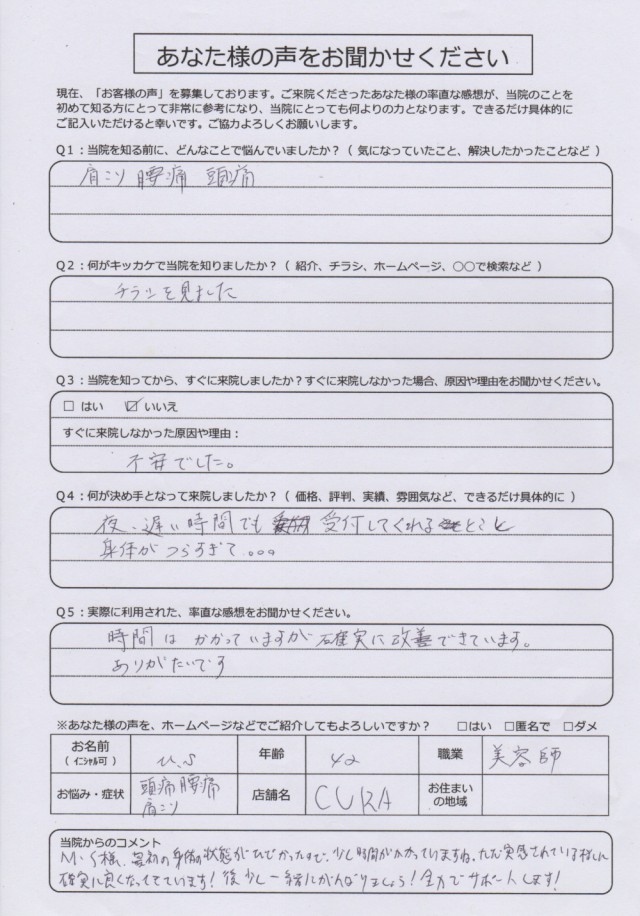 あなた様の声をお聞かせください
現在、「お客様の声」を募集しております。ご来院くださったあなた様の率直な感想が、当院のことを
初めて知る方にとって非常に参考になり、当院にとっても何よりの力となります。できるだけ具体的に
ご記入いただけると幸いです。ご協力よろしくお願いします。
Q1：当院を知る前に、どんなことで悩んでいましたか？（ 気になっていたこと、解決したかったことなど ）
肩こり 腰痛 頭痛
Q2：何がキッカケで当院を知りましたか？（ 紹介、チラシ、ホームページ、○○で検索など ）
チラシを見ました
Q3：当院を知ってから、すぐに来院しましたか？すぐに来院しなかった場合、原因や理由をお聞かせください。
□ はい ☑ いいえ
すぐに来院しなかった原因や理由：
不安でした。
Q4：何が決め手となって来院しましたか？（ 価格、評判、実績、雰囲気など、できるだけ具体的に ）
夜、遅い時間でも 受付してくれる とこと
身体がつらすぎて。。。
Q5：実際に利用された、率直な感想をお聞かせください。
時間はかかっていますが確実に改善できています。
ありがたいです
※あなた様の声を、ホームページなどでご紹介してもよろしいですか？ □はい □匿名で □ダメ
お名前 年齢 42 職業 美容師
（ イニシャル可 ）
お悩み・症状 頭痛 腰痛 店舗名 CURA お住まい
肩こり の地域
当院からのコメント
M・S様、最初の身体の状態がひどかったので、少し時間がかかっていますね。ただ実感されている様に
確実に良くなってきています！後少し一緒にがんばりましょう！全力でサポートします！